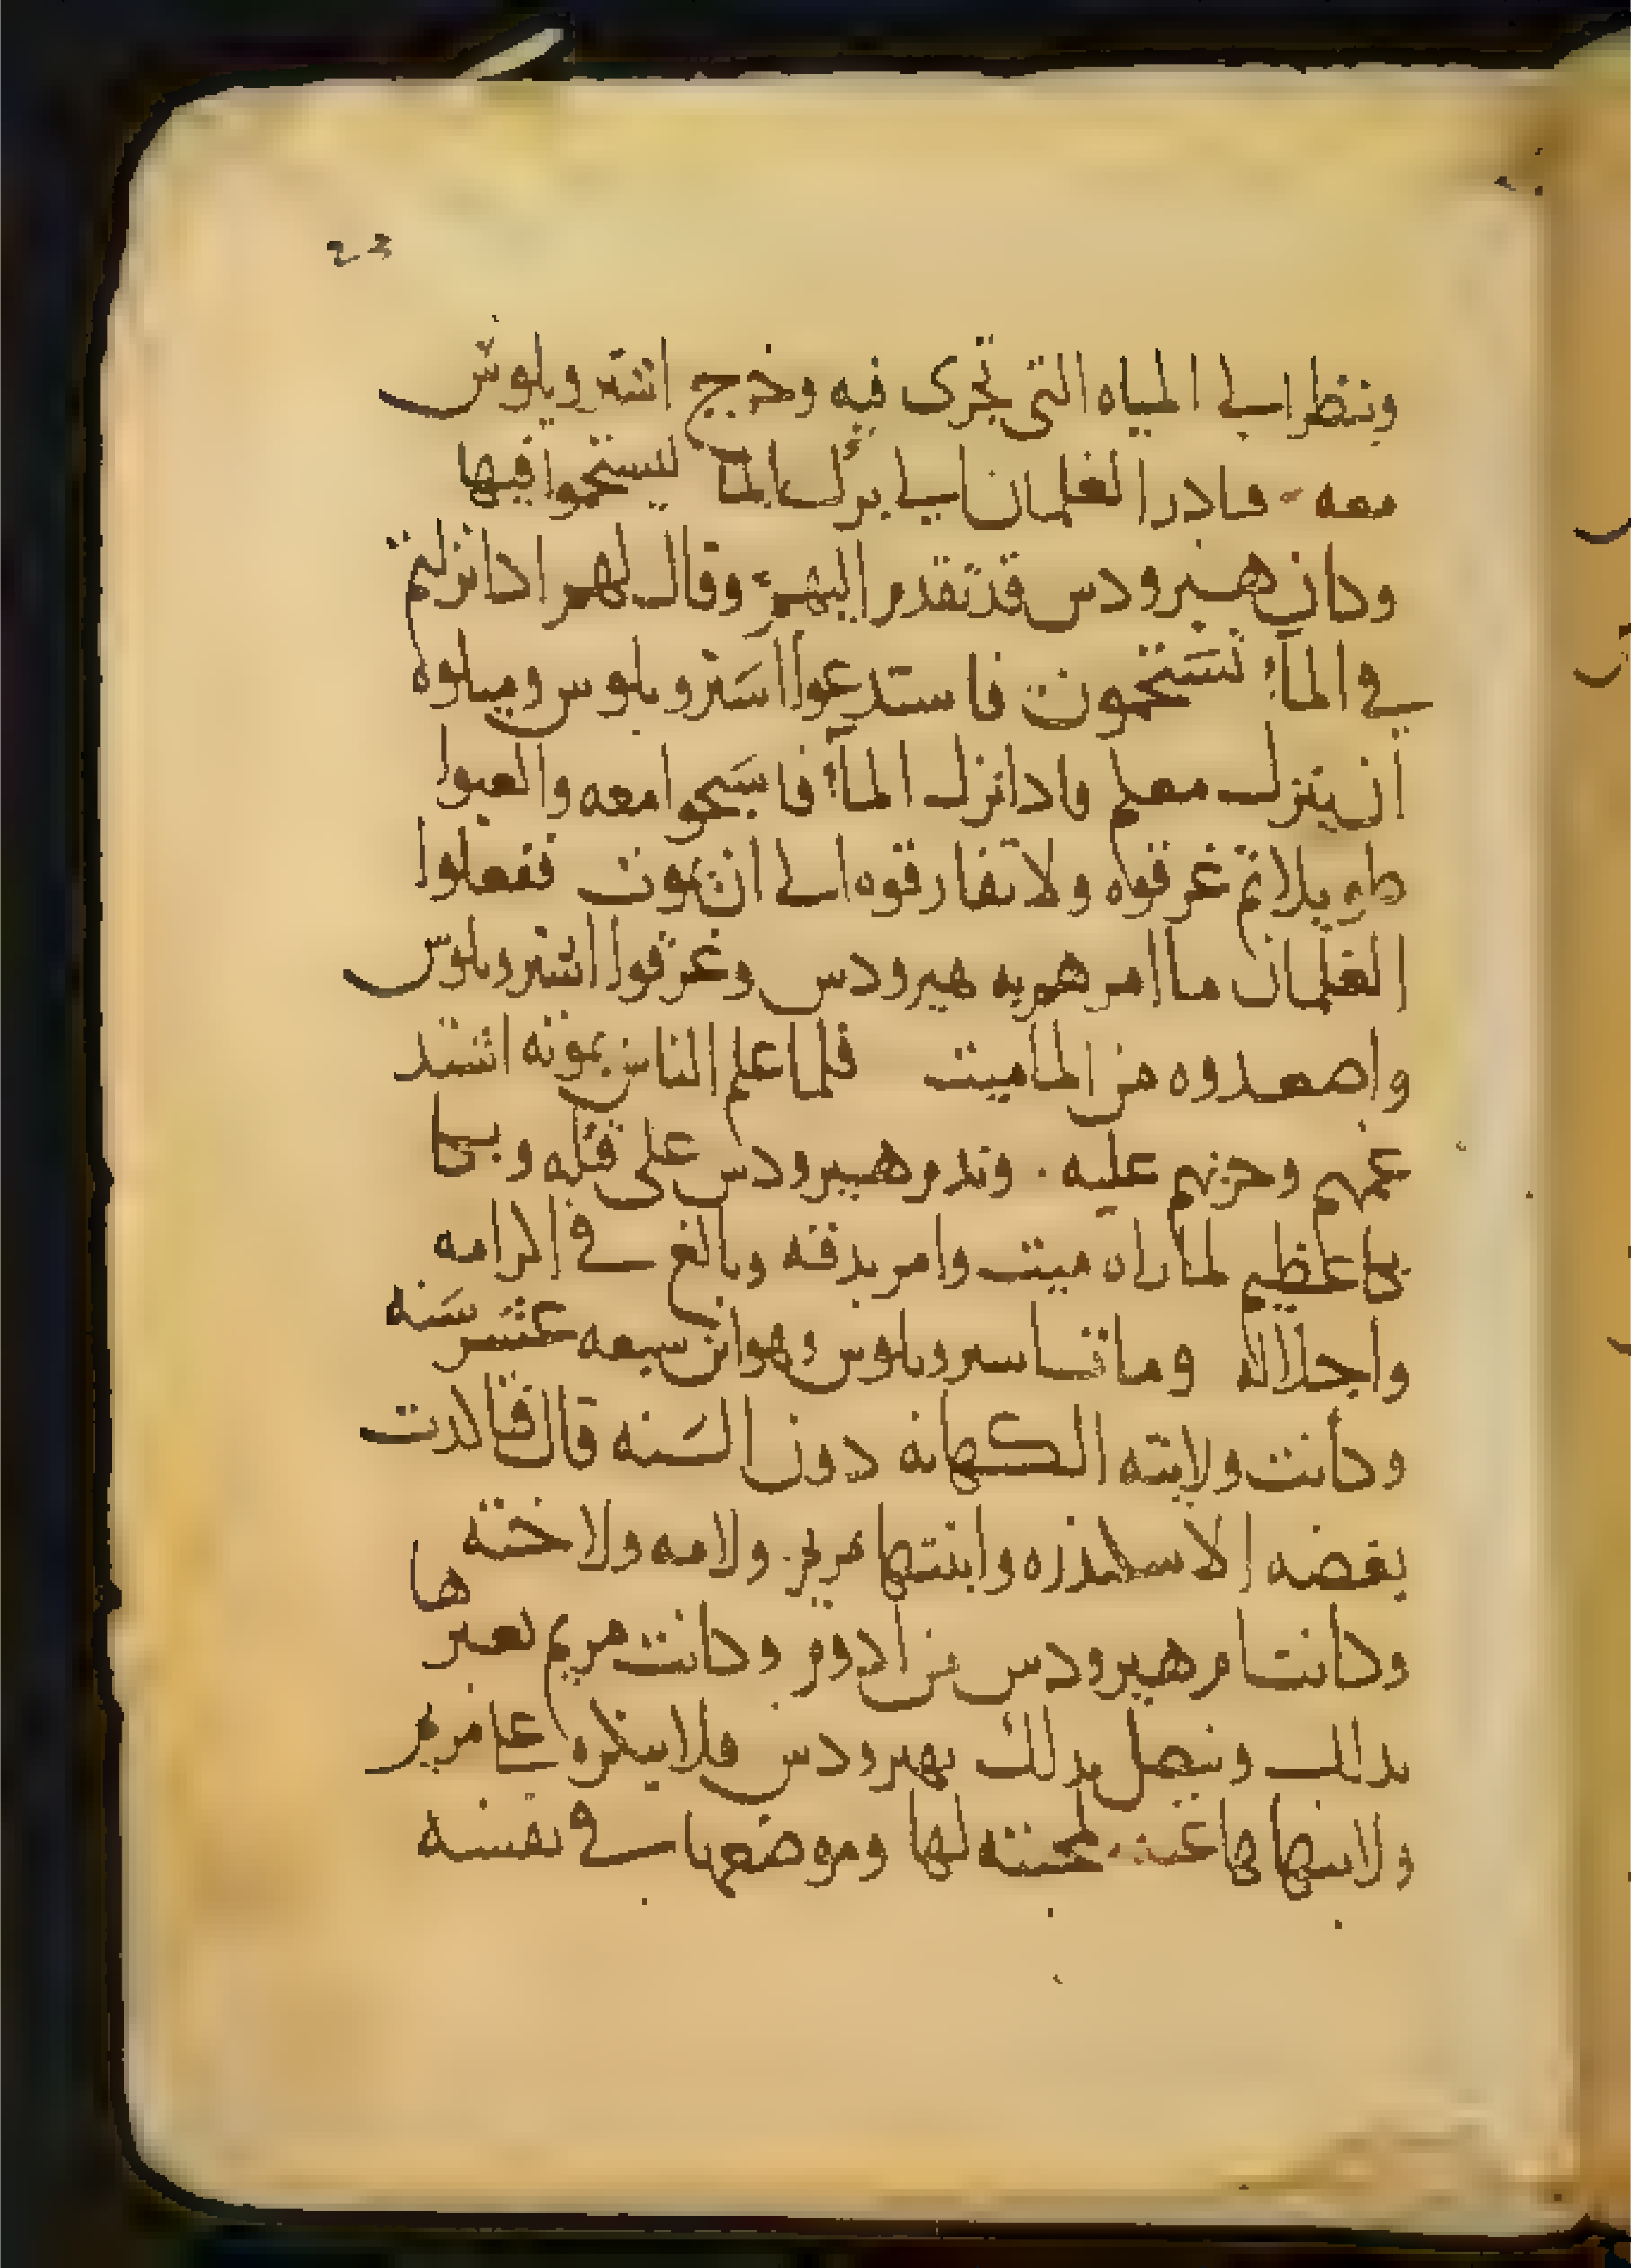 23
وننظر الى المياه التى تجرى فيه وخرج اشتروبلوش
معه فبادر الغلمان الى برك الما ليستحموا فيها
وكان هيرودس قد تقدم اليهم وقال لهم اذا نزلتم
في الماء تستحمون فاستدعوا استروبلوس وسلوه
ان ينزل معكم فادا نزل الماء فاسبحوا معه والعبوا
طويلا ثم غرقوه ولا تفارقوه الى ان يموت ففعلوا
الغلمان ما امرهم به هيرودس وغرقوا اشتروبلوس
واصعدوه من الما ميت فلما علم الناس بموته اشتد
غمهم وحزنهم عليه وندم هيرودس على قتله وبكا
بكا عظيم لما راه ميت وامر بدفنه وبالغ في اكرامه
واجلاله ومات اسروبلوس وهو ابن سبعه عشر سنه
وكانت ولايته الكهانه دون السنه قال فتاكدت
بغضه الاسكندره وابنتها مريم ولامه ولاخته
ها
وكانت ام هيرودس من ادوم وكانت مريم تعير
بدلك ويتصل بدلك بهيرودس فلا ينكره على مريم
ولا ينهاها عنه لمحبته لها وموضعها في نفسه